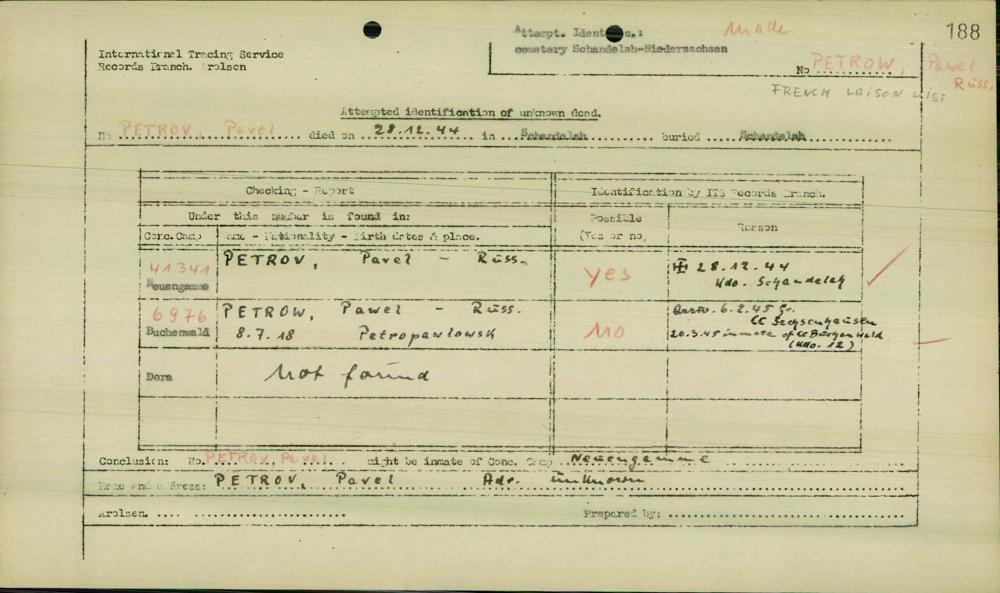 188
International Tracing Service
Records Branch. Arolsen
Attempt. Ident c.: Made
cemetery Schandelah-Niedersachsen
No PETROW, Pawel
Russ.
FRENCH LAISON LIST
Attempted identification of unknown dead.
No PETROV, Pavel died on 28.12.44 in Schandelah buried Schandelah
Checking - Report
Identification by ITS Records Branch.
Under this number is found in:
Possible
(Yes or no,
Reason
Conc. Camp
Name - Nationality - Birth dates & place.
41341
Neuengamme
PETROV, Pavel - Russ.
yes
28.12.44
Kdo. Schandelah
6976
Buchenwald
PETROW, Pawel - Russ.
8.7.18 Petropawlowsk
No
Arriv. 6.2.45 fr.
CC Sachsenhausen
20.3.45 inmate of CC Buchenwald
(Kdo. 12)
Dora
Not found
Conclusion: No. PETROV, Pavel might be inmate of Conc. Camp Neuengamme
Name and address: PETROV, Pavel Adr. unknown
Arolsen. .... ......................
Prepared by: ..............................